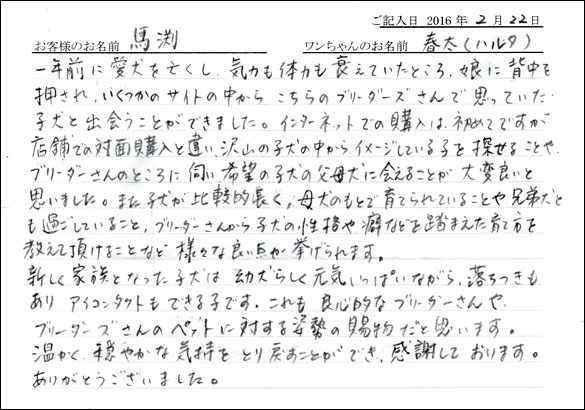 ご記入日 2016 年 2 月 22 日
お客様のお名前 馬渕 ワンちゃんのお名前 春太(ハルタ)
一年前に愛犬を亡くし、気力も体力も衰えていたところ、娘に背中を
押され、いくつかのサイトの中から こちらのブリーダーズさんで思っていた
子犬と出会うことができました。インターネットでの購入は、初めてですが
店舗での対面購入と違い、沢山の子犬の中からイメージしている子を探せることや、
ブリーダーさんのところに伺い希望の子犬の父母犬に会えることが大変良いと
思いました。また子犬が比較的長く、母犬のもとで育てられていることや兄弟犬と
も過ごしていること、ブリーダーさんから子犬の性格や癖などを踏まえた育て方を
教えて頂けることなど 様々な良い点が挙げられます。
新しく家族となった子犬は 幼犬らしく元気いっぱいながら、落ちつきも
あり アイコンタクトもできる子です。これも良心的なブリーダーさんや、
ブリーダーズさんのペットに対する姿勢の賜物だと思います。
温かく、穏やかな気持をとり戻すことができ、感謝しております。
ありがとうございました。